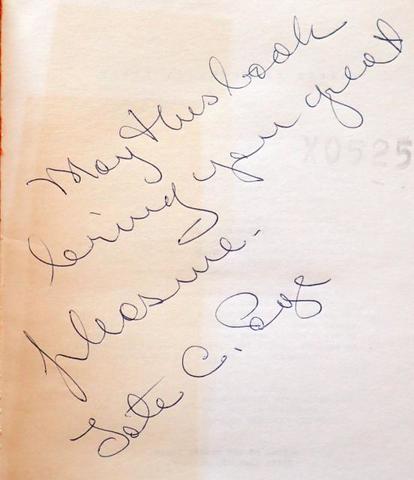 May this book
bring you great
pleasure.
Tate C. Page
X0525